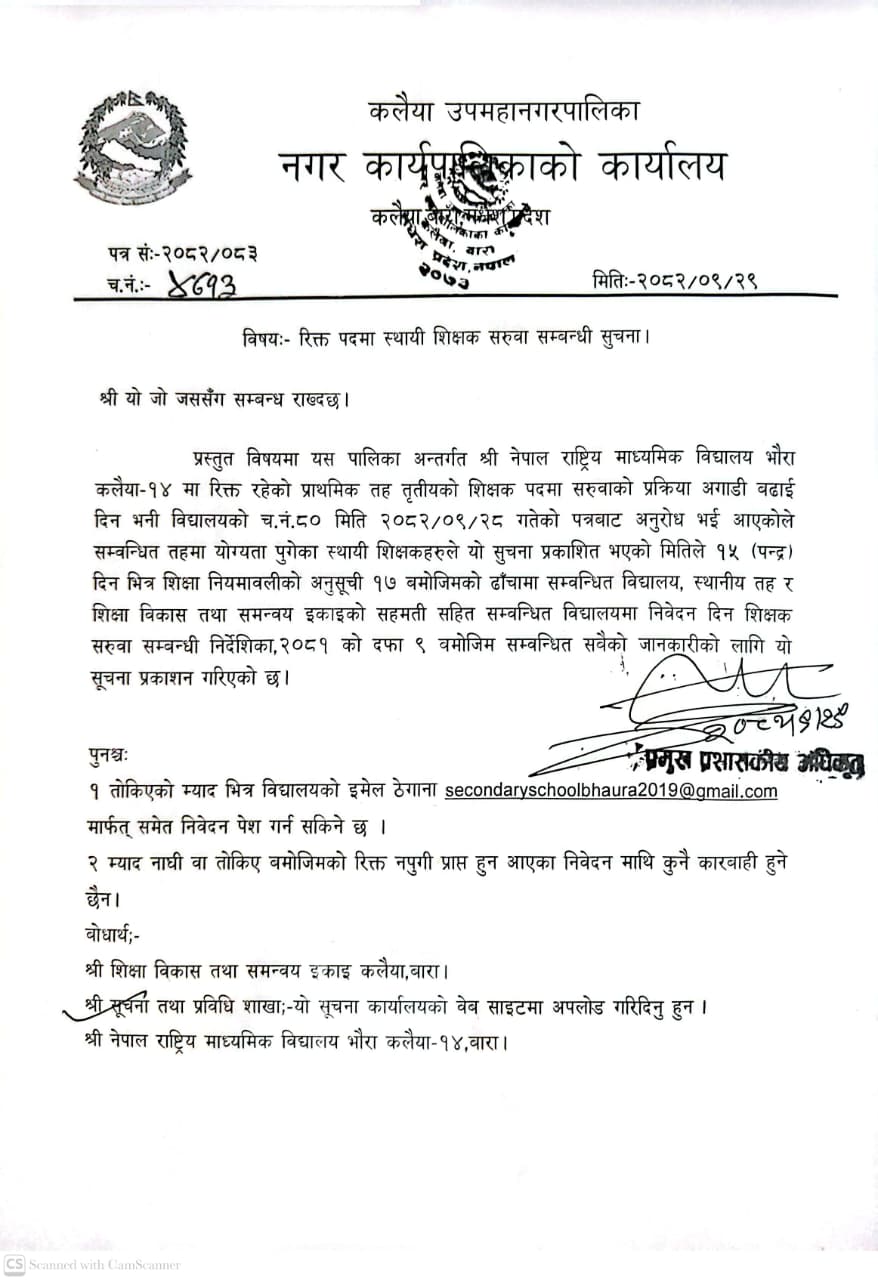 कलैया उपमहानगरपालिका
नगर कार्यपालिकाको कार्यालय
कलैया,बारा,मधेश प्रदेश
पत्र सं:-२०८२/०८३
च.नं.:- ४६१३
मितिः-२०८२/०९/२९
विषयः- रिक्त पदमा स्थायी शिक्षक सरुवा सम्बन्धी सुचना।
श्री यो जो जससँग सम्बन्ध राख्दछ।
प्रस्तुत विषयमा यस पालिका अन्तर्गत श्री नेपाल राष्ट्रिय माध्यमिक विद्यालय भौरा
कलैया-१४ मा रिक्त रहेको प्राथमिक तह तृतीयको शिक्षक पदमा सरुवाको प्रक्रिया अगाडी वढाई
दिन भनी विद्यालयको च.नं.८० मिति २०८२/०९/२८ गतेको पत्रबाट अनुरोध भई आएकोले
सम्वन्धित तहमा योग्यता पुगेका स्थायी शिक्षकहरुले यो सुचना प्रकाशित भएको मितिले १५ (पन्द्र)
दिन भित्र शिक्षा नियमावलीको अनुसूची १७ बमोजिमको ढाँचामा सम्वन्धित विद्यालय, स्थानीय तह र
शिक्षा विकास तथा समन्वय इकाइको सहमती सहित सम्वन्धित विद्यालयमा निवेदन दिन शिक्षक
सरुवा सम्बन्धी निर्देशिका,२०८१ को दफा ९ वमोजिम सम्वन्धित सवैको जानकारीको लागि यो
सूचना प्रकाशन गरिएको छ।
प्रमुख प्रशासकीय अधिकृत
पुनश्चः
१ तोकिएको म्याद भित्र विद्यालयको इमेल ठेगाना secondaryschoolbhaura2019@gmail.com
मार्फत् समेत निवेदन पेश गर्न सकिने छ ।
२ म्याद नाघी वा तोकिए बमोजिमको रिक्त नपुगी प्राप्त हुन आएका निवेदन माथि कुनै कारवाही हुने
छैन।
वोधार्थ;-
श्री शिक्षा विकास तथा समन्वय इकाइ कलैया,बारा।
श्री सूचना तथा प्रविधि शाखा;-यो सूचना कार्यालयको वेब साइटमा अपलोड गरिदिनु हुन ।
श्री नेपाल राष्ट्रिय माध्यमिक विद्यालय भौरा कलैया-१४,बारा।
CS Scanned with CamScanner